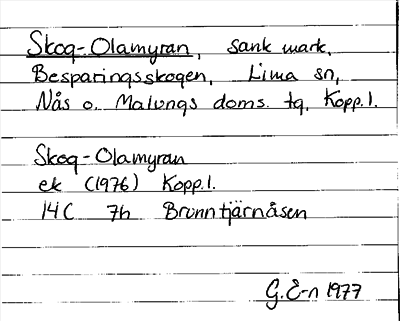 Skog-Olamyran, sank mark.
Besparingsskogen, Lima sn,
Nås o. Malungs doms. tg. Kopp.l.
Skog-Olamyran
ek (1976) Kopp.l.
14C 7h Brunntjärnåsen
G.E-n 1977